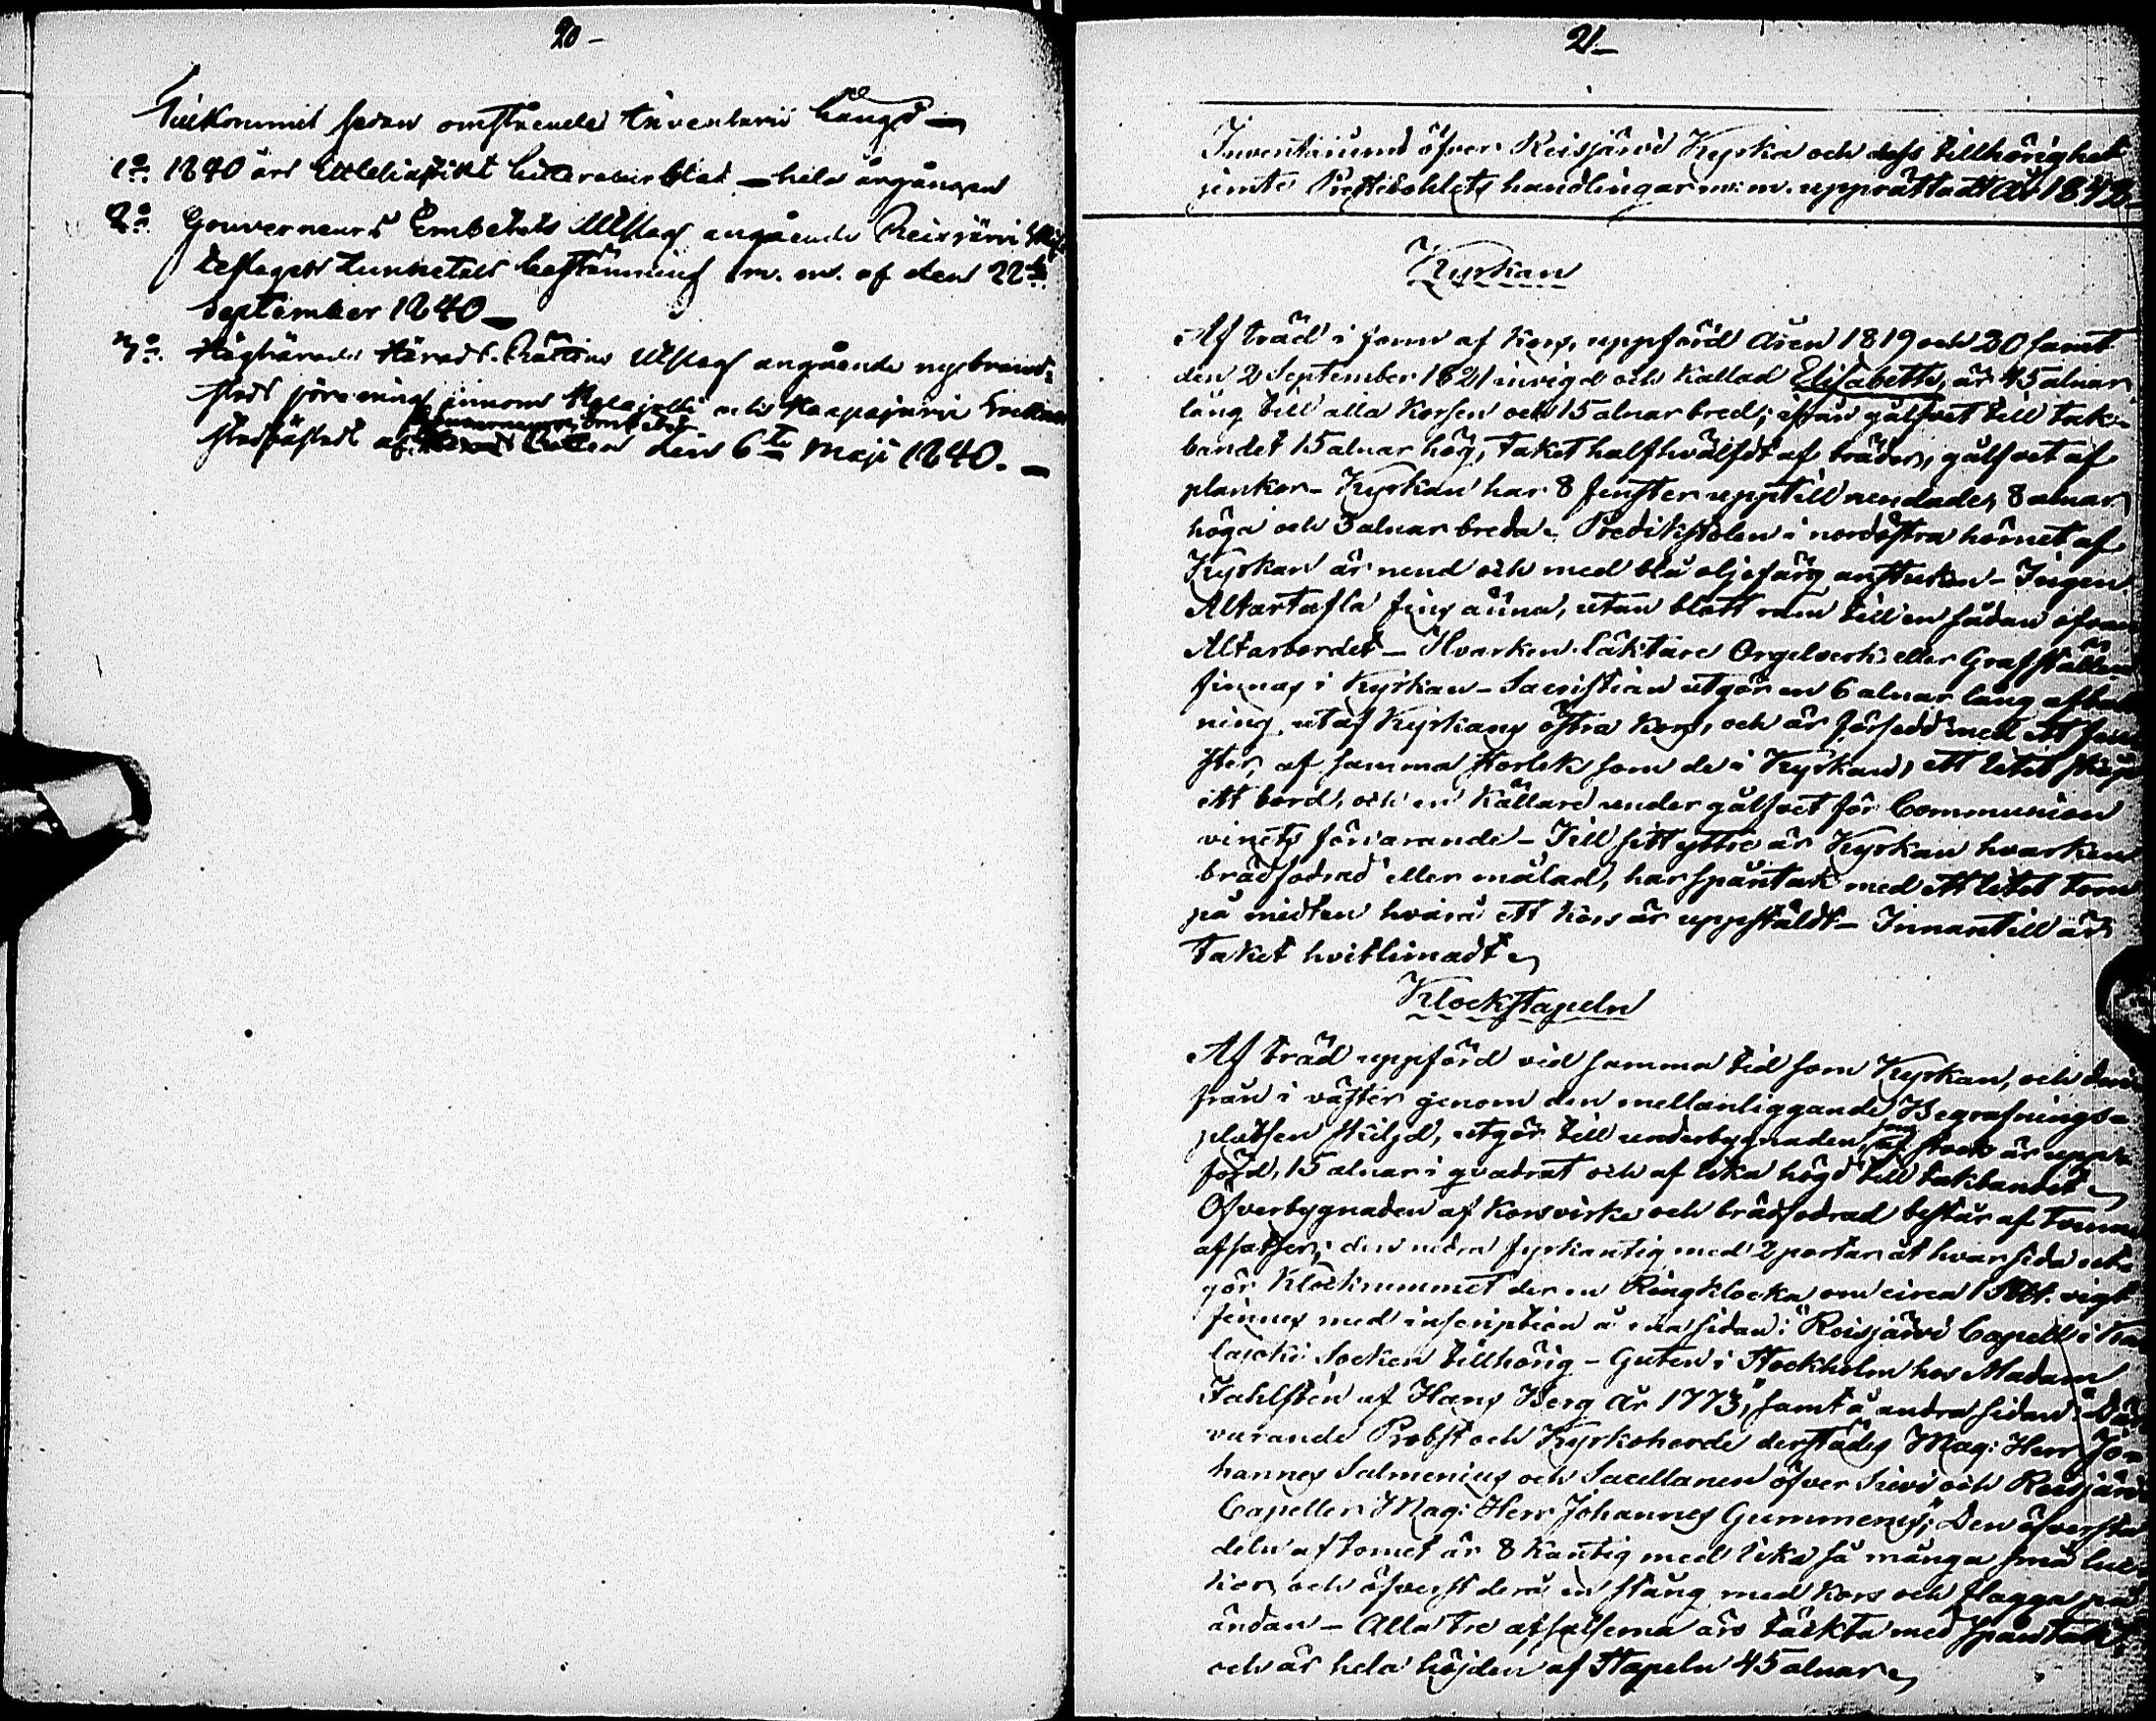 20 –
Tillkommit sedan omstående Inventarii längd —
1o. 1840 års Ecclesiastikt Litteraturblad — hela årgången
2o. Gouverneurs Embetets Utslag angående Reisjärvi
September 1840 —
3o. Häradts Rättens Utslag angående
den 6te Maji 1840. —
21 –
Inventarium öfver Reisjärvi Kyrka och dess tillhörighet
jemte Prestebohlets handlingar m: m. upprättadt År 1842 –
Kyrkan
Af träd i form af Kors, uppförd Åren 1819 och 20 samt
den 2 September 1821 invigd och kallad Elisabeth, är 45 alnar
lång till alla Korsen och 15 alnar bred; ifrån gålfvet till tak-
bandet 15 alnar hög, taket halfhvälfdt af bräder, gålfvet af
plankor – Kyrkan har 8 fenster upptill rundade, 8 alnar
höga och 3 alnar breda – Predikstolen i nordöstra hörnet af
Kyrkan är rund och med blå oljefärg anstruken – Ingen
Altartafla fins ännu, utan blott ram till en sådan ofvan
Altarbordet – Hvarken Läktare Orgelverk eller Grafställen
finnas i Kyrkan – Sacristian utgör en 6 alnar lång
ning utaf Kyrkans östra Kors, och är försedd med ett fen-
ster, af samma storlek som de i Kyrkan, ett litet skåp
ett bord, och en Källare under gålfvet för Communion
vinets förvarande – Till sitt yttre är Kyrkan hvarken
brädfodrad eller målad, har spåntak med ett litet torn
på midten hvarå ett Kors är uppstäldt – Innantill är
taket hvitlimadt –
Klockstapeln
Af träd uppförd vid samma tid som Kyrkan, och der-
ifrån i väster genom den mellanliggande Begrafnings-
platsen skiljd, utgör till underbygnaden, som af stock är upp-
förd, 15 alnar i qvadrat och af lika högd till takbandet –
Öfverbygnaden af korsvirke och brädfodrad består af tvenne
afsatser; den nedra fyrkantig med 2 portar åt hvar sida ut-
gör Klockrummet der en Ringklocka om circa 1 vigt
finnes med inscription å ena sidan: "Reisjärvi Capell i Ka-
lajoki Socken tillhörig – Guten i Stockholm hos Madam
Fahlstén af Hans Berg År 1773," samt å andra sidan: "Då
varande Probst och Kyrkoherde derstädes Mag: Herr Jo-
hannes Salmenius och Sacellanen öfver Sievi och Reisjärvi
Capeller Mag: Herr Johannes Gummerus"; Den öfversta
deln af tornet är 8 kantig med lika så många små luc-
kor, och öfverst derå en stång med Kors och flagga på
ändan – Alla tre afsatserna äro täckta med spåntak,
och är hela höjden af Stapeln 45 alnar –